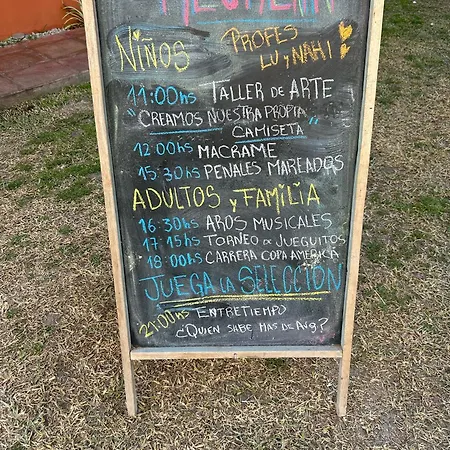 NiÑOS
PROFES
LU y NAHI
11:00hs TALLER DE ARTE
"CREAMOS NUESTRA PROPIA
CAMISETA"
12:00hs MACRAME
15:30hs PENALES MAREADOS
ADULTOS y FAMILIA
16:30hs AROS MUSICALES
17:15hs TORNEO DE JUEGUITOS
18:00hs CARRERA COPA AMERICA
JUEGA LA SELECCIÓN
21:00hs ENTRETIEMPO
¿QUIEN SABE MAS DE Arg?